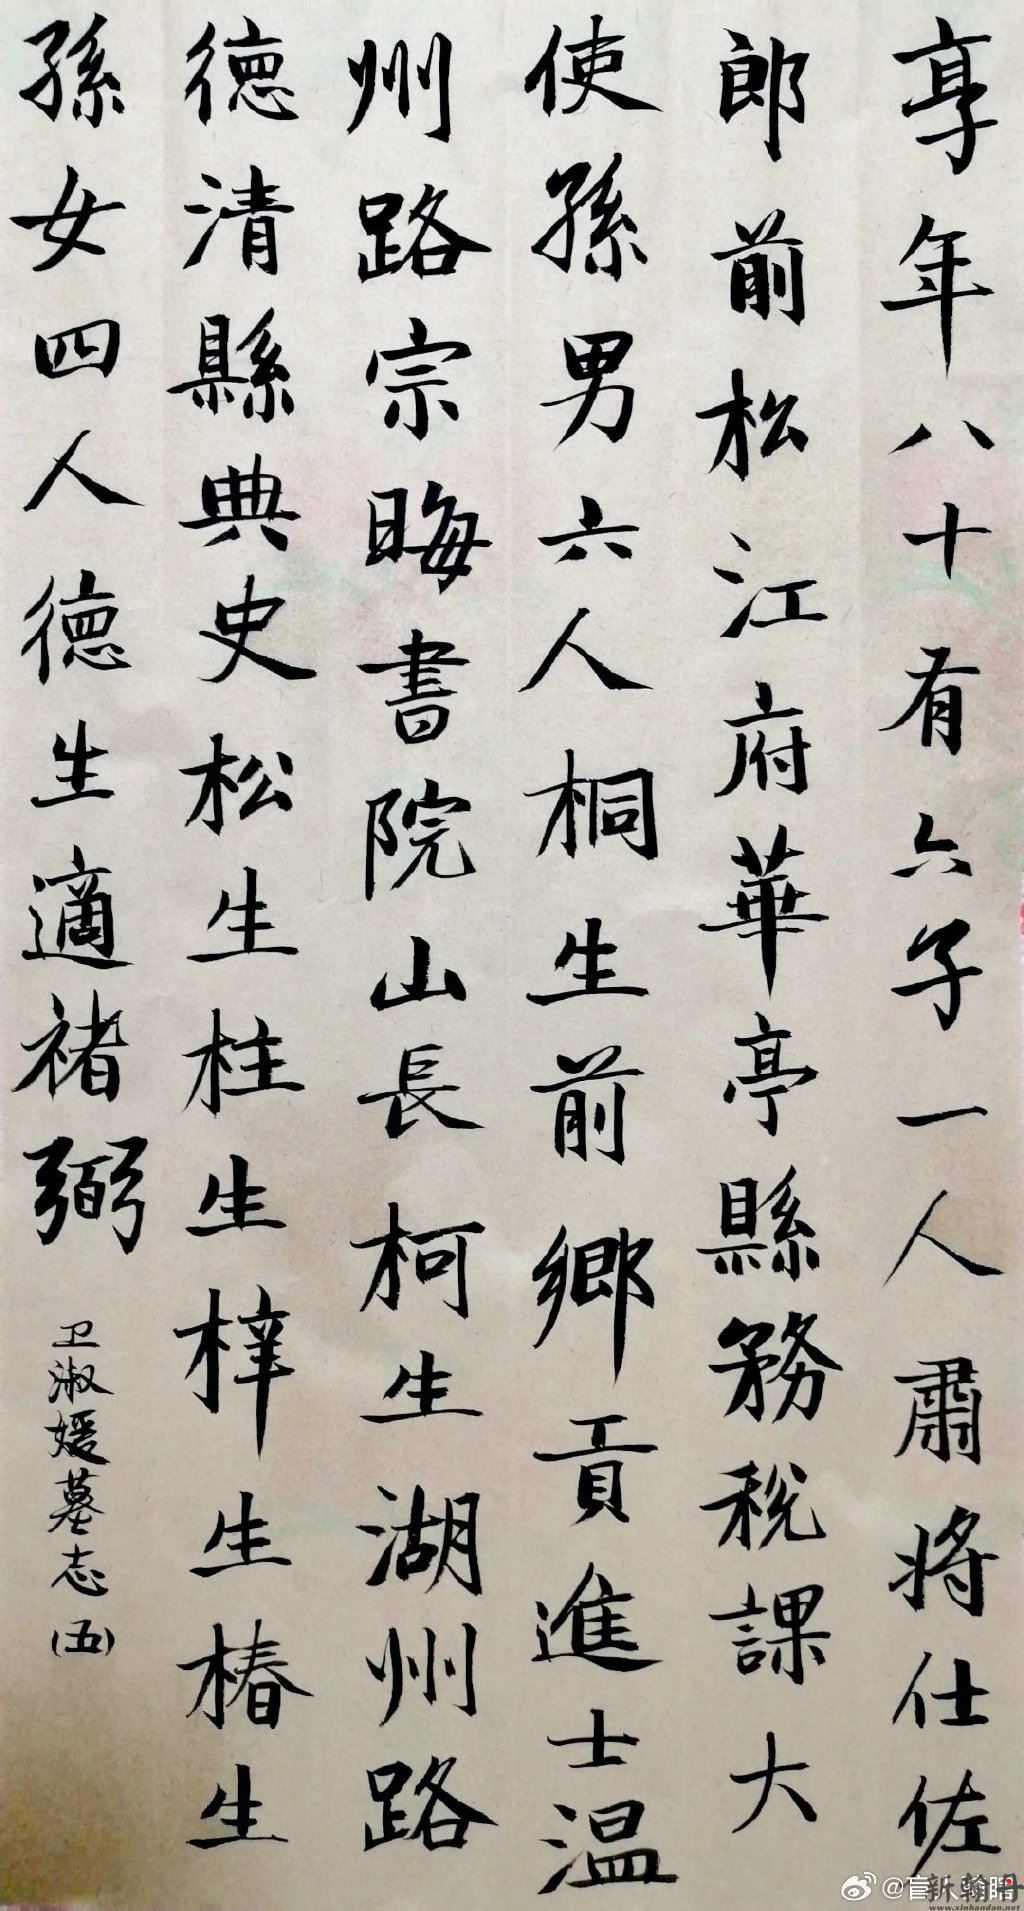 享年八十有六子一人肅將仕佐
郎前松江府華亭縣務稅課大
使孫男六人桐生前鄉貢進士温
州路宗晦書院山長柯生湖州路
德清縣典史松生桂生梓生椿生
孫女四人德生適褚弼
卫淑媛墓志(五)
新翰丹
www.xinhandan.net